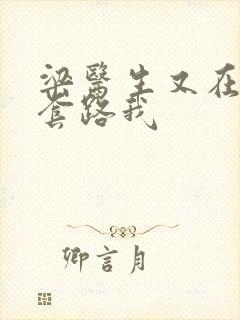 梁醫生又在
套路我
卿言月